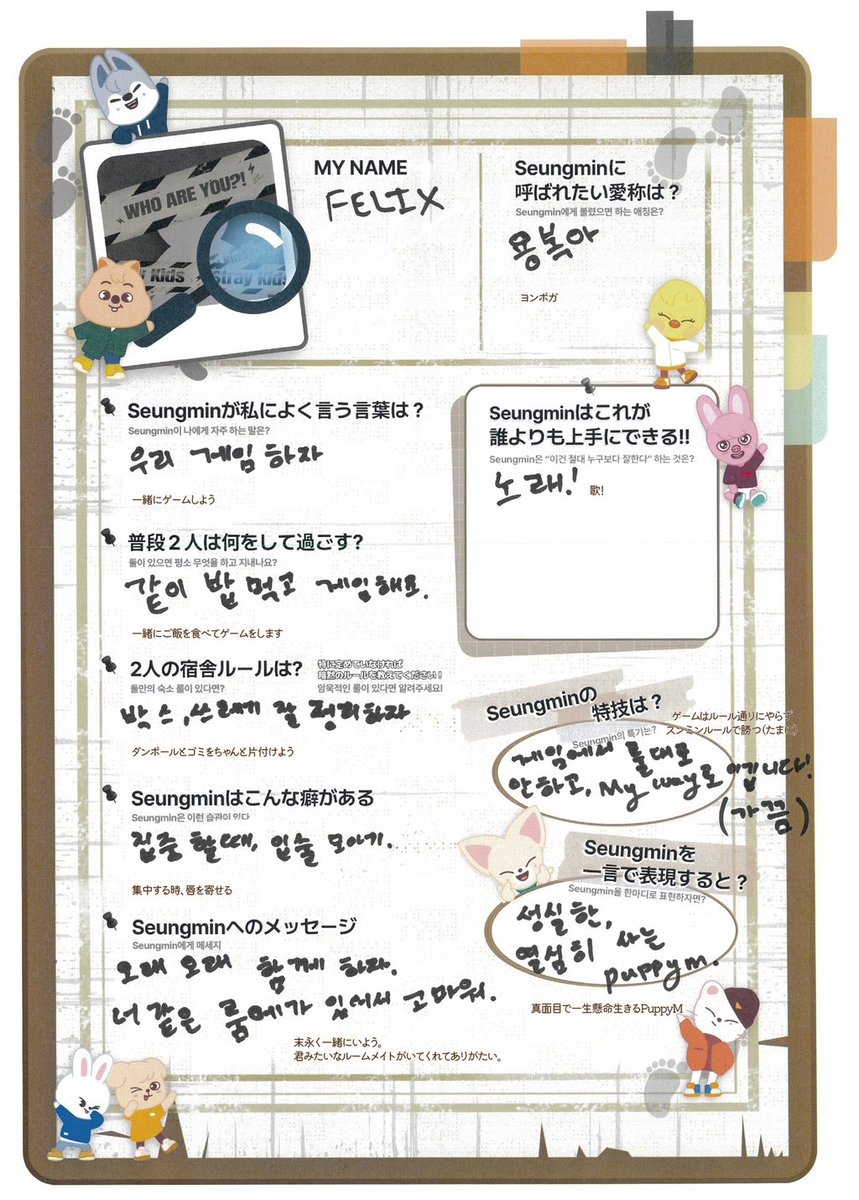 WHO ARE YOU?!
Stray Kids
Stray Kids
MY NAME
FELIX
Seungminに
呼ばれたい愛称は？
Seungmin에게 불렸으면 하는 애칭은?
용복아
ヨンボガ
Seungminが私によく言う言葉は？
Seungmin이 나에게 자주 하는 말은?
우리 게임 하자
一緒にゲームしよう
Seungminはこれが
誰よりも上手にできる!!
Seungmin은 “이건 절대 누구보다 잘한다” 하는 것은?
노래!
歌!
普段２人は何をして過ごす?
둘이 있으면 평소 무엇을 하고 지내나요?
같이 밥 먹고 게임해요.
一緒にご飯を食べてゲームをします
2人の宿舎ルールは?
特に定めていなければ
暗黙のルールを教えてください！
둘만의 숙소 룰이 있다면?
암묵적인 룰이 있다면 알려주세요!
박스, 쓰레기 잘 정리하자
ダンボールとゴミをちゃんと片付けよう
Seungminの
特技は？
Seungmin의 특기는?
ゲームはルール通りにやらず
スンミンルールで勝つ(たまに)
게임에서 룰대로
안하고, My way로 이깁니다!
(가끔)
Seungminはこんな癖がある
Seungmin은 이런 습관이 있다
집중 할때, 입술 모아기.
集中する時、唇を寄せる
Seungminを
一言で表現すると？
Seungmin을 한마디로 표현하자면?
성실한,
열심히 사는
puppym.
真面目で一生懸命生きるPuppyM
Seungminへのメッセージ
Seungmin에게 메세지
오래 오래 함께 하자.
너 같은 룸메가 있어서 고마워.
末永く一緒にいよう。
君みたいなルームメイトがいてくれてありがたい。